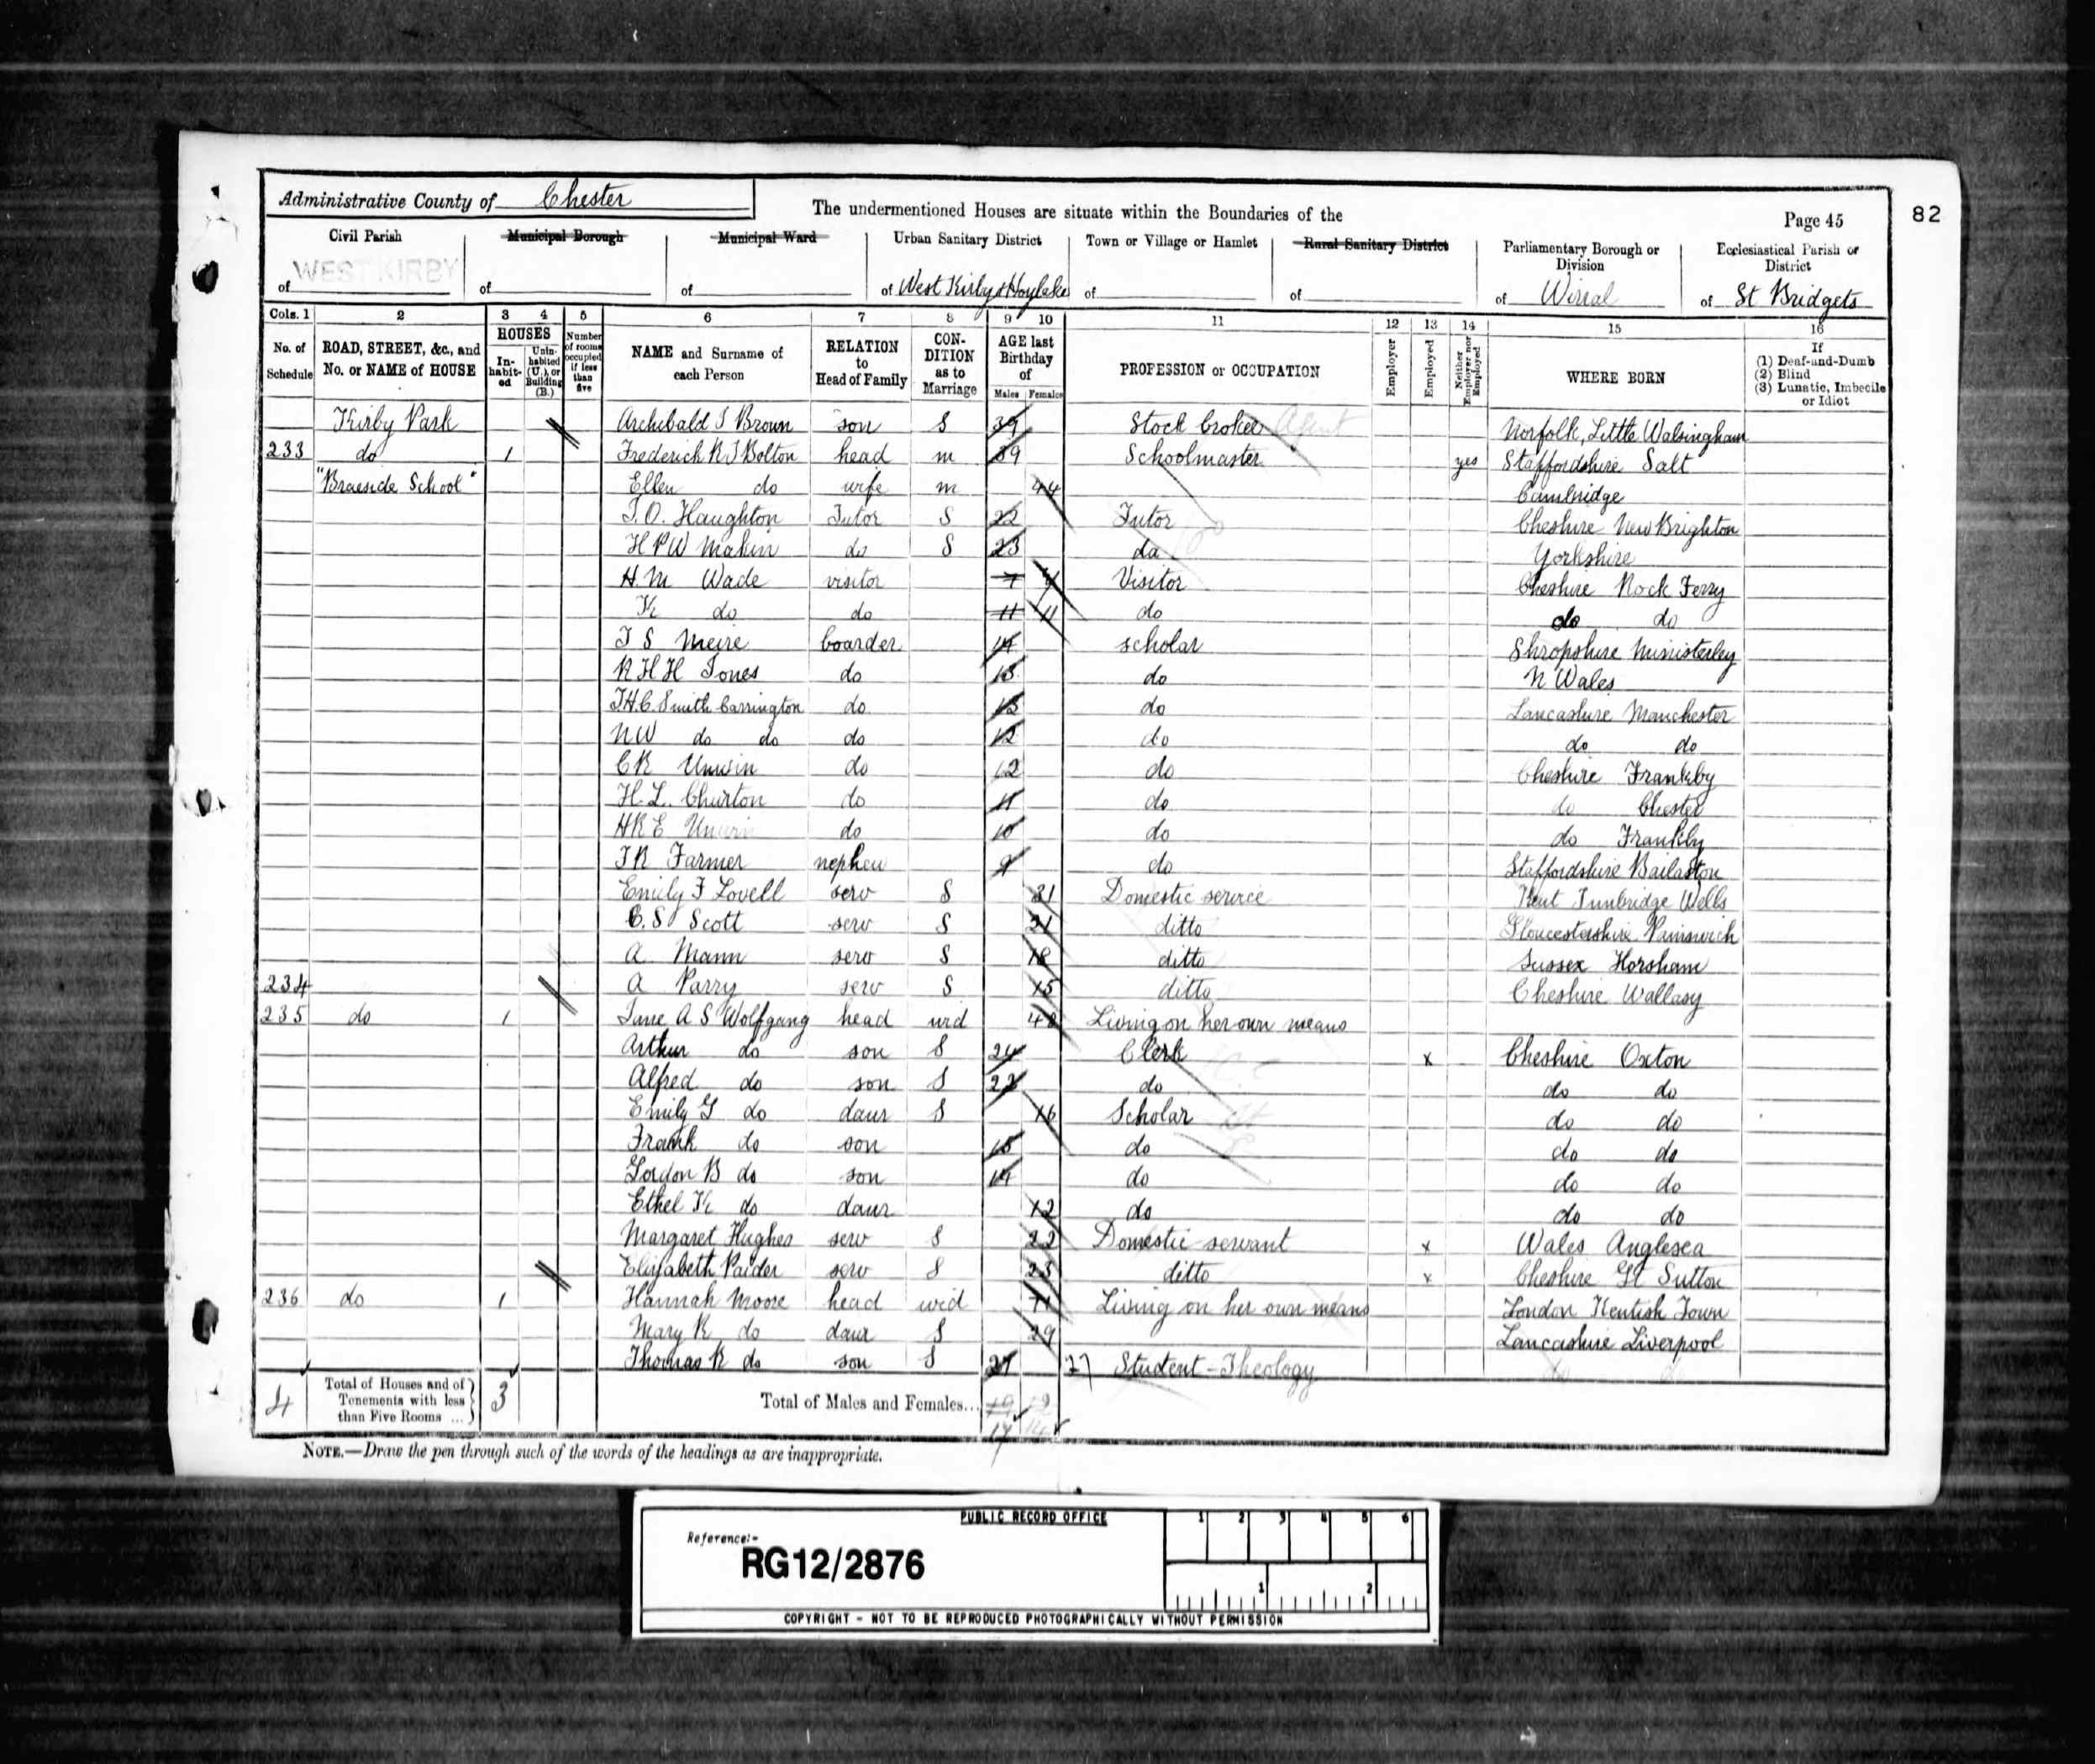 82
Administrative County of Chester
The undermentioned Houses are situate within the Boundaries of the
Page 45
Civil Parish of WEST KIRBY
Municipal Borough of
Municipal Ward of
Urban Sanitary District of West Kirby & Hoylake
Town or Village or Hamlet of
Rural Sanitary District of
Parliamentary Borough or Division of Wirral
Ecclesiastical Parish or District of St Bridgets
Cols. 1 2 3 4 5 6 7 8 9 10 11 12 13 14 15 16
No. of Schedule
ROAD, STREET, &c., and No. or NAME of HOUSE
HOUSES
In-habit-ed
Unin-habited (U.), or Building (B.)
Number of rooms occupied if less than five
NAME and Surname of each Person
RELATION to Head of Family
CON-DITION as to Marriage
AGE last Birthday of
Males Females
PROFESSION or OCCUPATION
Employer
Employed
Neither Employer nor Employed
WHERE BORN
If (1) Deaf-and-Dumb (2) Blind (3) Lunatic, Imbecile or Idiot
Kirby Park Archibald S Brown son S 39 Stock broker Agent Norfolk, Little Walsingham
233 do 1 Frederick R J Bolton head m 39 Schoolmaster yes Staffordshire Salt
"Braeside School" Ellen do wife m 44 Cambridge
T.O. Haughton Tutor S 22 Tutor Cheshire New Brighton
H P W Makin do S 23 do Yorkshire
H M Wade visitor 7 Visitor Cheshire Rock Ferry
K do do 11 11 do do do
T S Meire boarder 14 scholar Shropshire Ministerley
R H H Jones do 13 do N Wales
T.H.C. Smith Carrington do 13 do Lancashire Manchester
N W do do do 12 do do do
C R Unwin do 12 do Cheshire Frankby
H. L. Churton do 11 do do Chester
H R E Unwin do 10 do do Frankby
T R Farmer nephew 9 do Staffordshire Bailaston
Emily F Lovell serv S 21 Domestic service Kent Tunbridge Wells
C. S Scott serv S 21 ditto Gloucestershire Painswick
A Mann serv S 18 ditto Sussex Horsham
234 A Parry serv S 15 ditto Cheshire Wallasy
235 do 1 Jane A S Wolfgang head wid 48 Living on her own means
Arthur do son S 24 Clerk x Cheshire Oxton
Alfred do son S 22 do do do
Emily G do daur S 16 Scholar do do
Frank do son 15 do do do
Gordon B do son 14 do do do
Ethel K do daur 12 do do do
Margaret Hughes serv S 22 Domestic servant x Wales Anglesea
Elizabeth Paider serv S 23 ditto x Cheshire Gt Sutton
236 do 1 Hannah Moore head wid 71 Living on her own means London Kentish Town
Mary R do daur S 29 Lancashire Liverpool
Thomas R do son S 27 27 Student - Theology do
4 Total of Houses and of Tenements with less than Five Rooms ... 3
Total of Males and Females... 19 12
17 14
NOTE.—Draw the pen through such of the words of the headings as are inappropriate.
PUBLIC RECORD OFFICE
1 2 3 4 5 6
Reference:-
RG12/2876
1 2
COPYRIGHT - NOT TO BE REPRODUCED PHOTOGRAPHICALLY WITHOUT PERMISSION